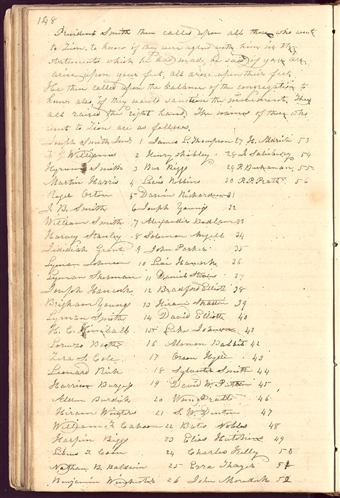 148
President Smith then called upon all those who went
to Zion, to know if they were agreed with him in the
statements which he had made, he said if you are,
arise upon your feet, all arose upon their feet.
He then called upon the balance of the congregation to
know also, if they would sanction the movement, they
all raised the right hand, The names of those who
went to Zion are as follows.
Joseph Smith 1 James L. Thompson 27 53
F. G. Williams 2 Henry Shibley 28 54
Hyrum Smith 3 Bur Riggs 29 55
Martin Harris 4 Lewis Robbins 30 P. P. Pratt 56
Roger Orton 5 Darwin Richardson 31
J. B. Smith 6 Joseph Young 32
William Smith 7 Alexander 33
Harvey Stanley 8 Solomon Angell 34
Jedidiah Grant 9 John Parker 35
Lyman Johnson 10 Levi Hancock 36
Lyman Sherman 11 Daniel 37
Joseph Hancock 12 Bradford Elliott 38
Brigham Young 13 Hiram 39
Lyman Smith 14 David Elliott 40
H. C. Kimball 15 Luke Johnson 41
Lorenzo Booth 16 Almon Babbitt 42
Zera S. Cole 17 Orson Hyde 43
Leonard Rich 18 Sylvester Smith 44
Harrison Burgess 19 David W. Patten 45
Alden Burdick 20 Wm. Pratt 46
Hiram Winters 21 47
William F. Cahoon 22 Bates Nobles 48
Harpin Riggs 23 Elias Hutchins 49
24 Charles Kelly 50
Nathan B. Baldwin 25 Ezra Thayer 51
Benjamin 26 John 52